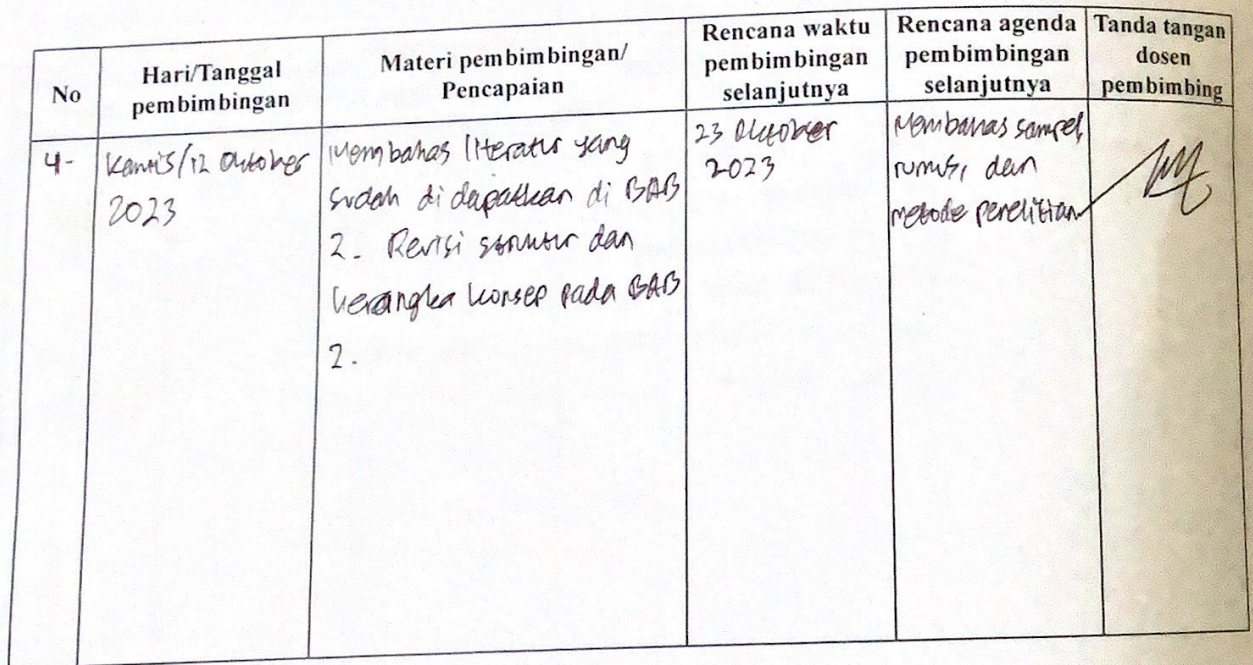 No
Hari/Tanggal
pembimbingan
Materi pembimbingan/
Pencapaian
Rencana waktu
pembimbingan
selanjutnya
Rencana agenda
pembimbingan
selanjutnya
Tanda tangan
dosen
pembimbing
4-
Kamis/12 Oktober
2023
Membahas literatur yang
sudah di dapatkan di BAB
2. Revisi struktur dan
kerangka konsep pada BAB
2.
23 Oktober
2023
Membahas sampel,
rumus, dan
metode penelitian